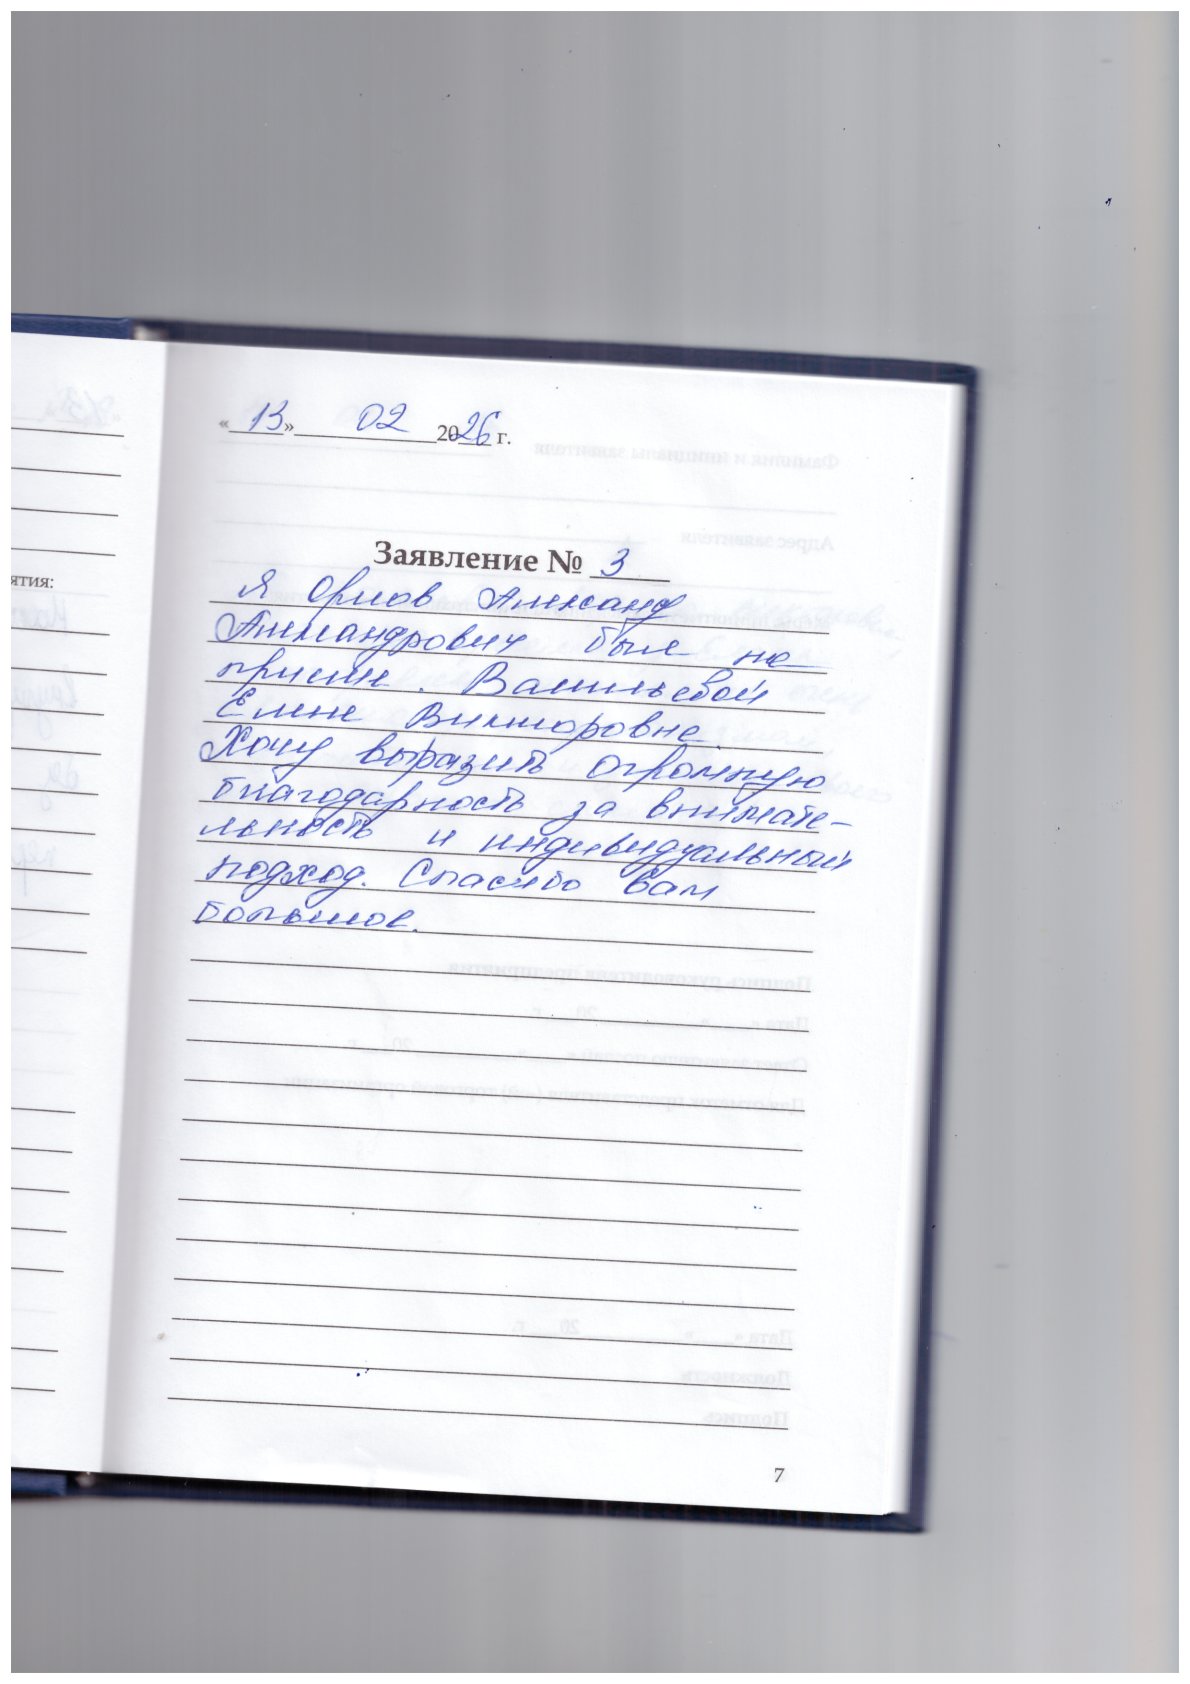 «13» 02 2026 г.
Заявление № 3
Я Орлов Александ
Александрович был на
приеме. Васильевой
Елене Викторовне.
Хочу выразить огромную
благодарность за внимате-
льность и индивидуальный
подход. Спасибо вам
большое.
ятия:
7